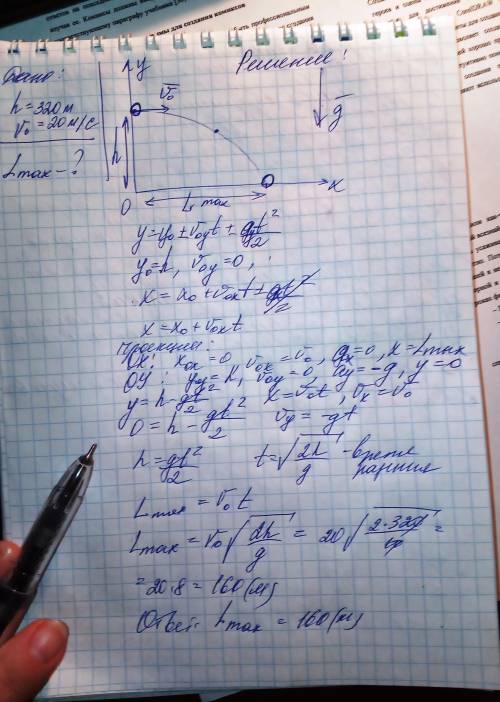 Дано:
h = 320 м
v₀ = 20 м/с
Lmax - ?
Решение!
y
v̄₀
ḡ
h
0
Lmax
x
y = y₀ ± v₀yt ± gt²/2
y₀ = h, v₀y = 0,
x = x₀ + v₀xt ± gt²/2
x = x₀ + v₀xt
Проекции:
OX: x₀x = 0, v₀x = v₀, gx = 0, x = Lmax
OY: y = h, v₀y = 0, ay = -g, y = 0
y = h - gt²/2 x = v₀t, vx = v₀
0 = h - gt²/2 vy = -gt
h = gt²/2 t = √(2h/g) - время
падения
Lmax = v₀t
Lmax = v₀√(2h/g) = 20√(2·320/10) =
= 20·8 = 160 (м)
Ответ: Lmax = 160 (м)